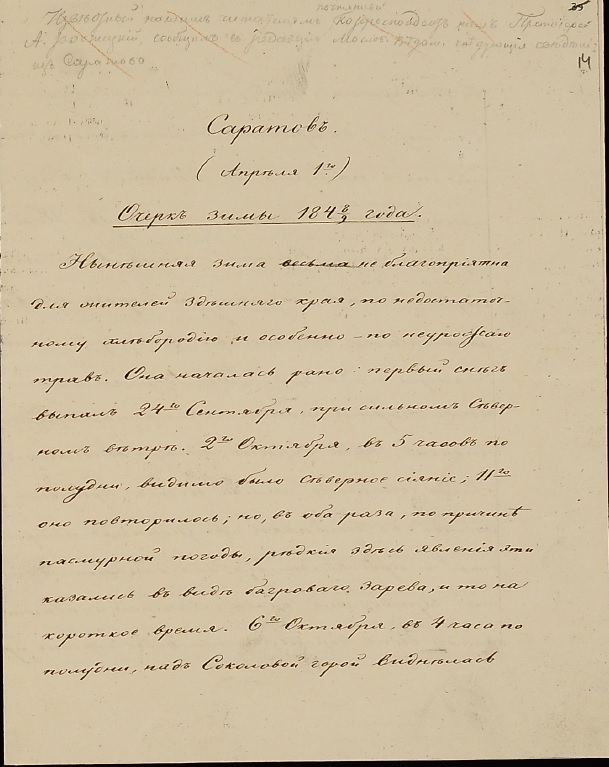 постоянно
Извѣстный нашимъ читателямъ Корреспондентъ нашъ Протоіерей
А. сообщилъ въ редакцію Моск. Вѣдом. слѣдующія
изъ Саратова.
25
14
Саратовъ.
(Апрѣля 1го)
Очеркъ зимы 1848/9 года.
Нынѣшняя зима весьма не благопріятна
для жителей здѣшняго края, по недостаточ-
ному хлѣбородію и особенно - по неурожаю
травъ. Она началась рано: первый снѣгъ
выпалъ 24го Сентября, при сильномъ Сѣвер-
номъ вѣтрѣ. 2го Октября, въ 5 часовъ по
полудни, видимо было Сѣверное сіяніе; 11го
оно повторилось; но, въ оба раза, по причинѣ
пасмурной погоды, рѣдкія здѣсь явленія эти
казались въ видѣ багроваго зарева, и то на
короткое время. 6го Октября, въ 4 часа по
полудни, надъ Соколовой горой виднѣлась